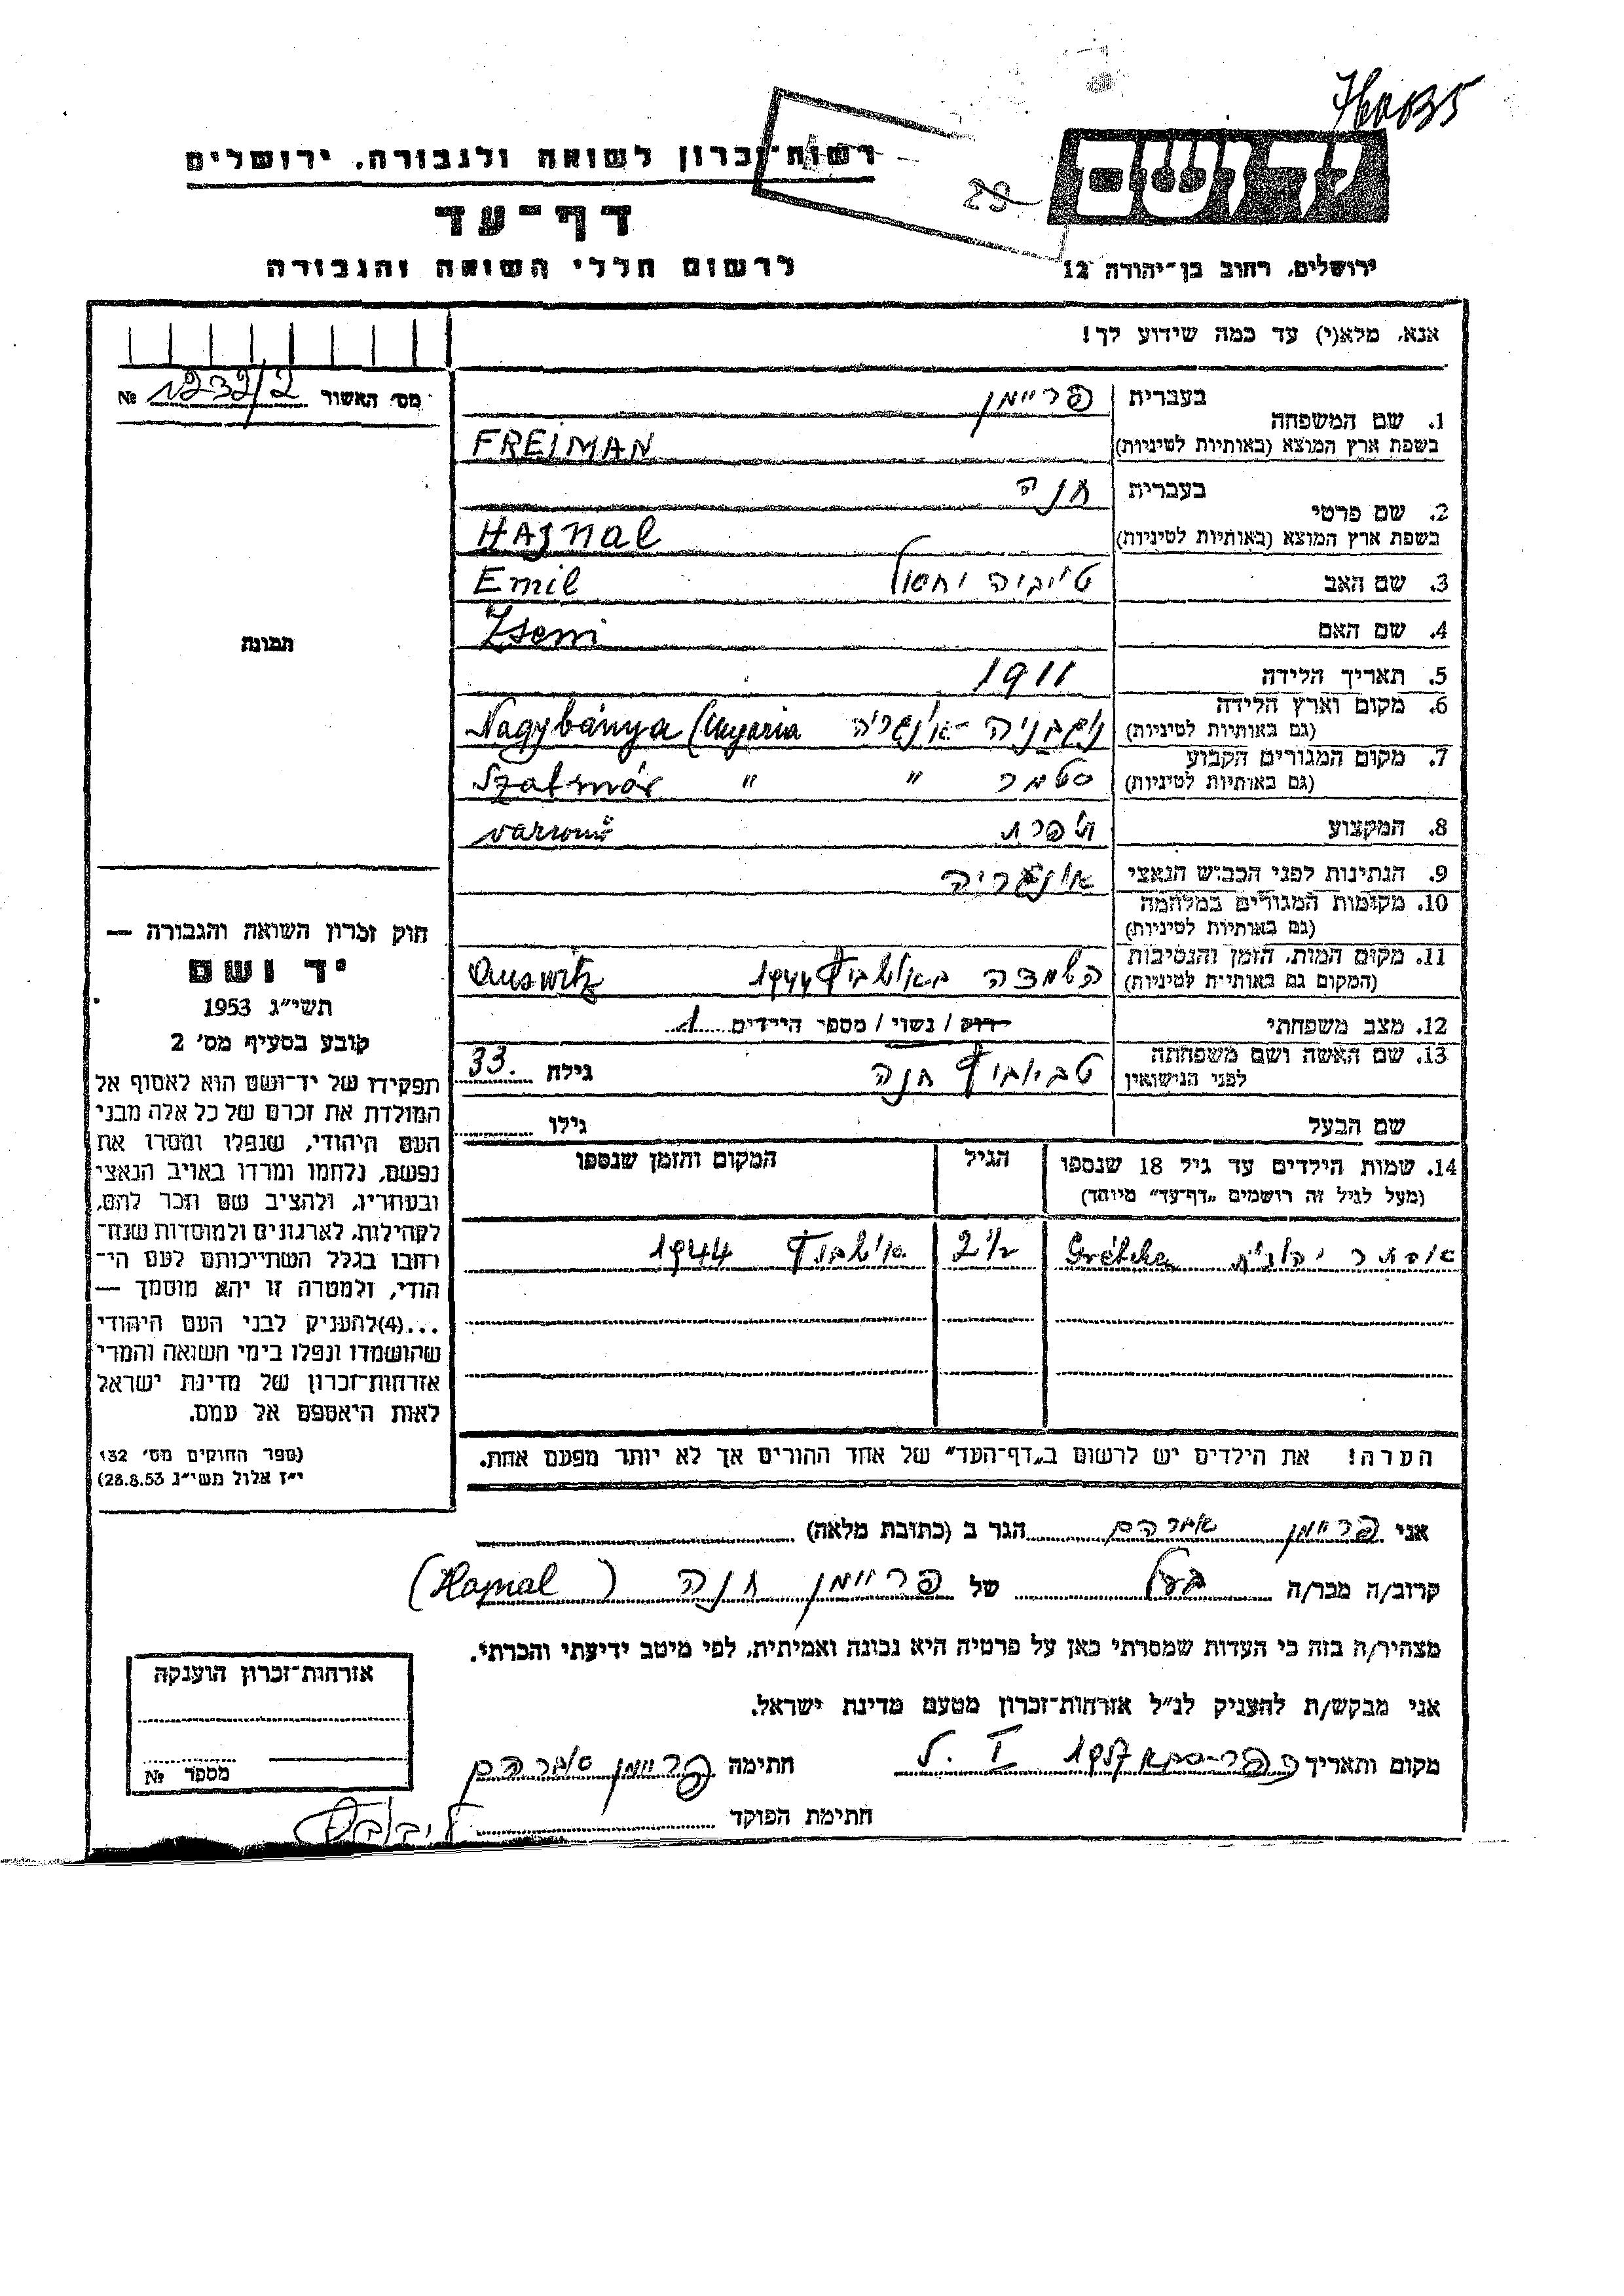 רשות־זכרון לשואה ולגבורה, ירושלים
יד ושם
דף־עד
לרשום חללי השואה והגבורה
ירושלים, רחוב בן־יהודה 12
אנא, מלא(י) עד כמה שידוע לך!
מס׳ האשור 1232/2 №
1. שם המשפחה
בעברית פריימן
בשפת ארץ המוצא (באותיות לטיניות) FREIMAN
2. שם פרטי
בעברית חנה
בשפת ארץ המוצא (באותיות לטיניות) HAJNAL
3. שם האב Emil
4. שם האם Zseni
5. תאריך הלידה 1911
6. מקום וארץ הלידה
(גם באותיות לטיניות) נגבניה - אונגריה Nagybánya (Ungaria
7. מקום המגורים הקבוע
(גם באותיות לטיניות) סטמר " " Szatmár
8. המקצוע תופרת varronö
9. הנתינות לפני הכבוש הנאצי אונגריה
10. מקומות המגורים במלחמה
(גם באותיות לטיניות)
11. מקום המות, הזמן והנסיבות
(המקום גם באותיות לטיניות) הושמדה באושביץ 1944 Auswitz
12. מצב משפחתי רוק / נשוי / מספר הילדים 1
13. שם האשה ושם משפחתה
לפני הנישואין חנה גילה 33.
שם הבעל גילו
14. שמות הילדים עד גיל 18 שנספו
(מעל לגיל זה רושמים „דף־עד״ מיוחד)
הגיל
המקום והזמן שנספו
אסתר יהודית 2½ אושביץ 1944
הערה! את הילדים יש לרשום ב„דף־העד״ של אחד ההורים אך לא יותר מפעם אחת.
תמונה
חוק זכרון השואה והגבורה —
יד ושם
תשי״ג 1953
קובע בסעיף מס׳ 2
תפקידו של יד־ושם הוא לאסוף אל
המולדת את זכרם של כל אלה מבני
העם היהודי, שנפלו ומסרו את
נפשם, נלחמו ומרדו באויב הנאצי
ובעוזריו, ולהציב שם וזכר להם,
לקהילות, לארגונים ולמוסדות שנח־
רחבו בגלל השתייכותם לעם הי־
הודי, ולמטרה זו יהא מוסמך —
...(4)להעניק לבני העם היהודי
שהושמדו ונפלו בימי השואה והמרי
אזרחות־זכרון של מדינת ישראל
לאות היאספם אל עמם.
(ספר החוקים מס׳ 132
י״ז אלול תשי״ג 28.8.53)
אני פריימן אברהם הגר ב (כתובת מלאה)
קרוב/ה מכר/ה בעל של פריימן חנה (Hajnal)
מצהיר/ה בזה כי העדות שמסרתי כאן על פרטיה היא נכונה ואמיתית, לפי מיטב ידיעתי והכרתי.
אני מבקש/ת להעניק לנ״ל אזרחות־זכרון מטעם מדינת ישראל.
מקום ותאריך כפר-סבא 1957 חתימה פריימן אברהם
חתימת הפוקד
אזרחות־זכרון הוענקה
מספר №